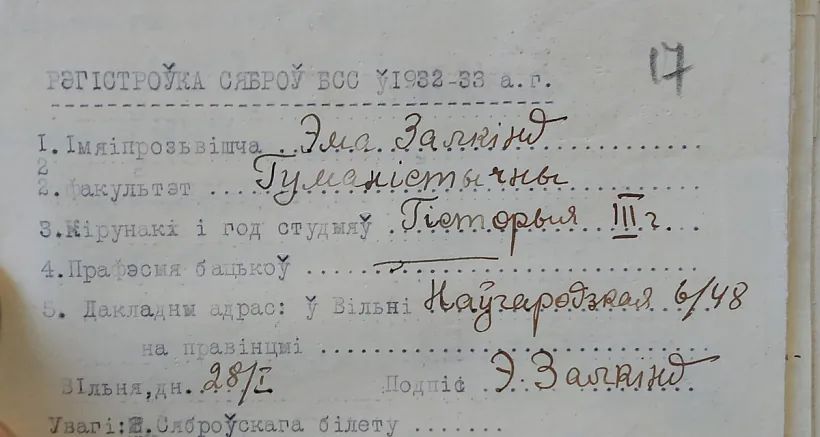 17
РЭГІСТРОЎКА СЯБРОЎ БСС ў1932-33 а.г.
1. Імяіпрозьвішча .. Эма Залкінд
2
2. факультэт ... Гуманістычны
3.Кірунакі і год студыяў . Гісторыя III г.
4.Прафэсыя бацькоў ..........
5. Дакладны адрас: ў Вільні Наўгародзкая 6/48
на правінцыі ..........
Вільня,дн. 28/I Подпіс . Э. Залкінд
Увагі:І.Сяброўскага білету .......